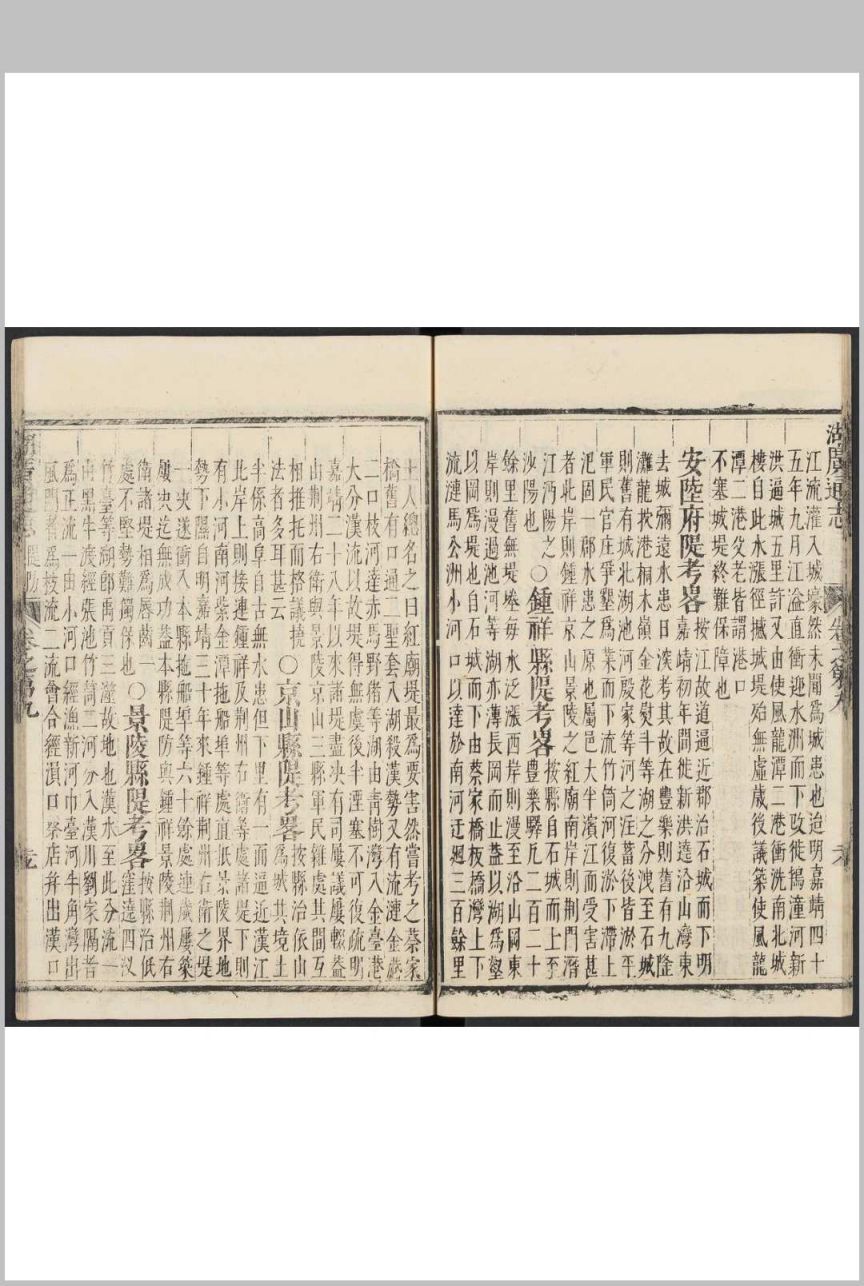 湖廣通志
江流灌入城壕然未聞爲城患也迨明嘉靖四十
五年九月江溢直衝迎水洲而下攺徙鴇潼河新
洪逼城五里許又由使風龍潭二港衝洗南北城
樓自此水漲徑搣城堤殆無虛歲後議築使風龍
潭二港父老皆謂港口
不塞城堤終難保障也
安陸府隄考畧按江故道逼近郡治石城而下明
嘉靖初年間徙新洪遶沿山灣東
去城彌遠水患日浸考其故在豐樂則舊有九隆
灘龍按港桐木嶺金花熨斗等湖之分洩至石城
則舊有城北湖池河殷家等河之洼蓄後皆淤平
軍民官庄爭墾爲業而下流竹筒河復淤下滯上
汜固一郡水患之原也屬邑大半濱江而受害甚
者此岸則鍾祥京山景陵之紅廟南岸則荆門潛
江沔陽之
沙陽也〇鍾祥縣隄考畧按縣自石城而上至
豐樂驛凡二百二十
餘里舊無堤塍每水泛漲西岸則漫至沿山岡東
岸則漫過池河等湖亦薄長岡而止葢以湖爲壑
以岡爲堤也自石城而下由蔡家橋板橋灣上下
流漣馬公洲小河口以達於南河迂廻三百餘里
土人總名之曰紅廟堤最爲要害然嘗考之蔡家
橋舊有口通二聖套入湖殺漢勢又有流漣金巌
二口枝河達赤馬野猪等湖由靑樹灣入金臺港
大分漢流以故堤得無虞後半湮塞不可復疏明
嘉靖二十八年以來諸堤盡決有司屢議屢輟葢
山荆州右衛與景陵京山三縣軍民雜處其間互
相推托而格議撓
法者多耳甚云〇京山縣隄考畧按縣治依山
爲城其境土
半係高阜自古無水患但下里有一面逼近漢江
北岸上則接連鍾祥及荆州右衛等處諸堤下則
有小河南河紫金潭拖船埠等處直抵景陵界地
勢下隰自明嘉靖三十年來鍾祥荆州右衛之堤
一決遂衝入本縣拖船埠等六十餘處連歲屢築
屢決迄無成功葢本縣隄防與鍾祥景陵荆州右
衛諸堤相爲唇齒一
處不堅勢難獨保也〇景陵縣隄考畧按縣治低
窪遶四汊
竹臺等湖郎禹貢三澨故地也漢水至此分流一
由黑牛渡經張池竹筒二河分入漢川劉家隔者
爲正流一由小河口經漁新河巾臺河牛角灣出
風門者爲枝流二流會合經湨口𡊮店并出漢口
卷之第九